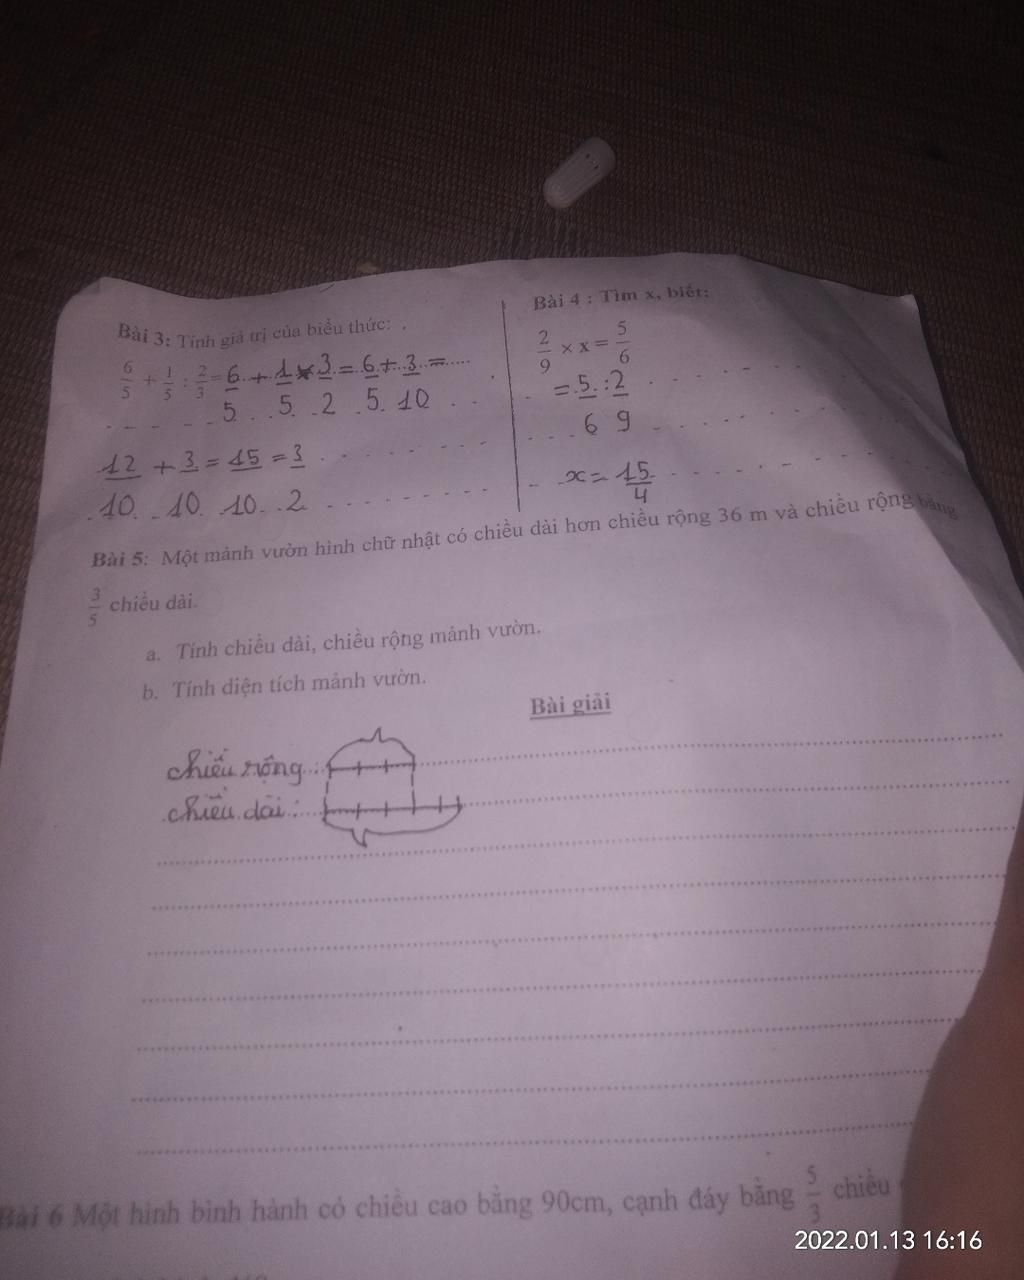 Bài 3: Tính giá trị của biểu thức:
6/5 + 1/5 : 2/3 = 6/5 + 1/5 × 3/2 = 6/5 + 3/10 =
12/10 + 3/10 = 15/10 = 3/2
Bài 4 : Tìm x, biết:
2/9 × x = 5/6
= 5/6 : 2/9
x = 15/4
Bài 5: Một mảnh vườn hình chữ nhật có chiều dài hơn chiều rộng 36 m và chiều rộng bằng
3/5 chiều dài.
a. Tính chiều dài, chiều rộng mảnh vườn.
b. Tính diện tích mảnh vườn.
Bài giải
chiều rộng :
chiều dài :
Bài 6 Một hình bình hành có chiều cao bằng 90cm, cạnh đáy bằng 5/3 chiều
2022.01.13 16:16